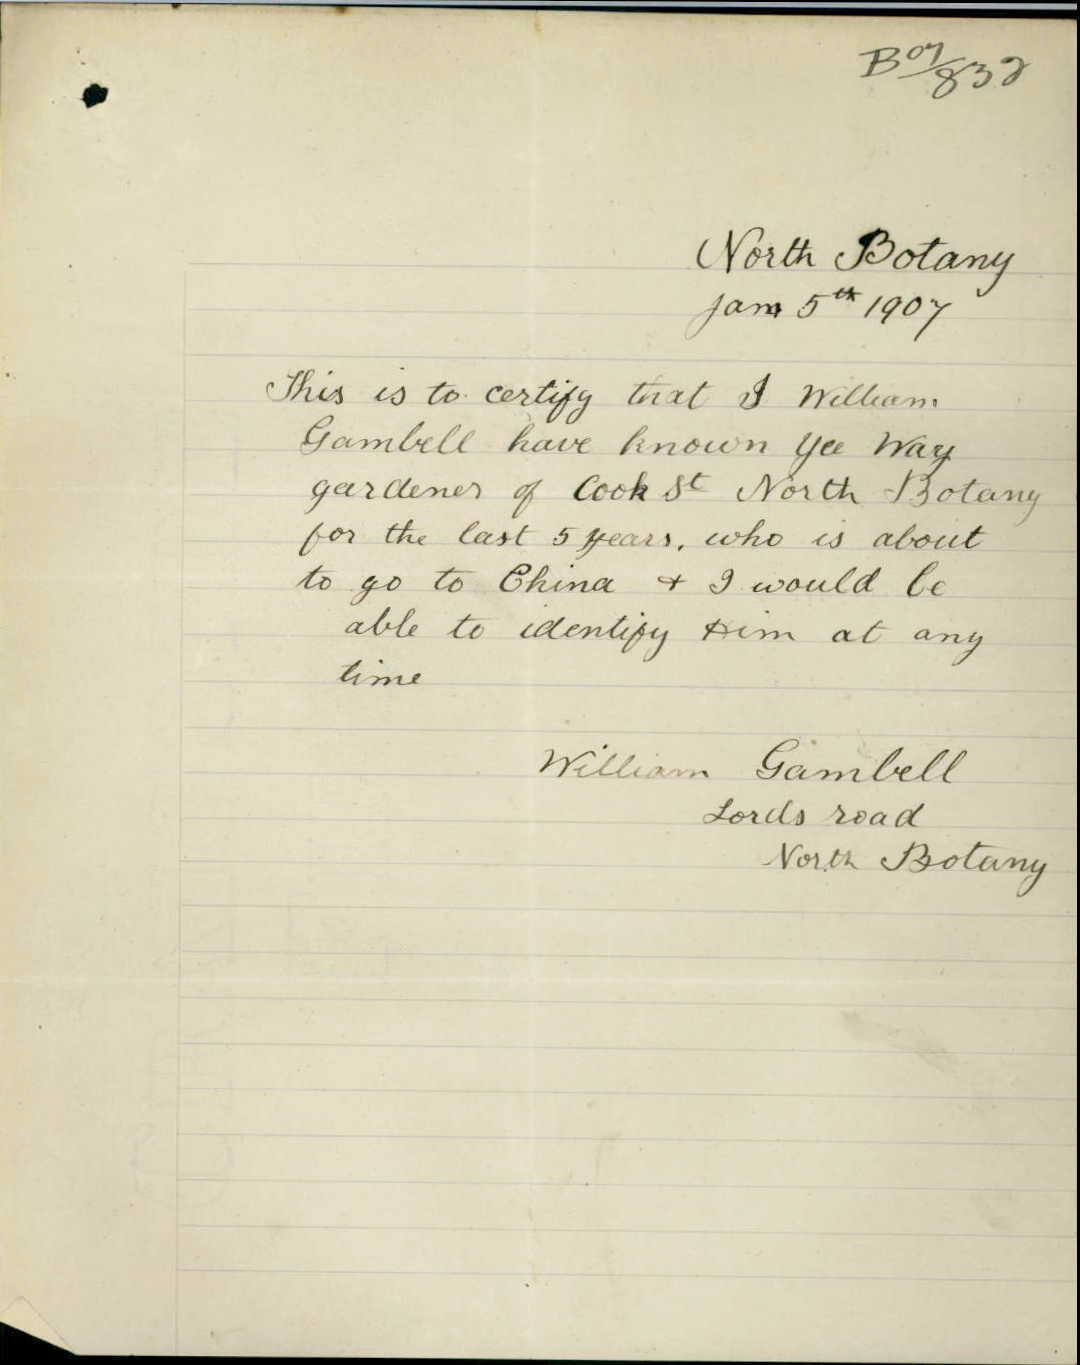 B07/832
North Botany
Jan 5th 1907
This is to certify that I William
Gambell have known Yee Way
gardener of Cook St North Botany
for the last 5 years, who is about
to go to China & I would be
able to identify Him at any
time
William Gambell
Lords road
North Botany